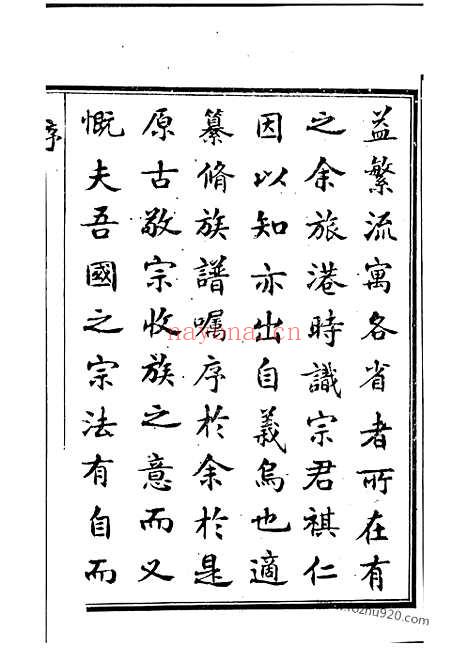 益繁流寓各省者所在有
之余旅港時識宗君祺仁
因以知亦出自義烏也適
纂脩族譜囑序於余於是
原古敬宗收族之意而又
慨夫吾國之宗法有自而
序
nayona.cn
www.fozhu920.com